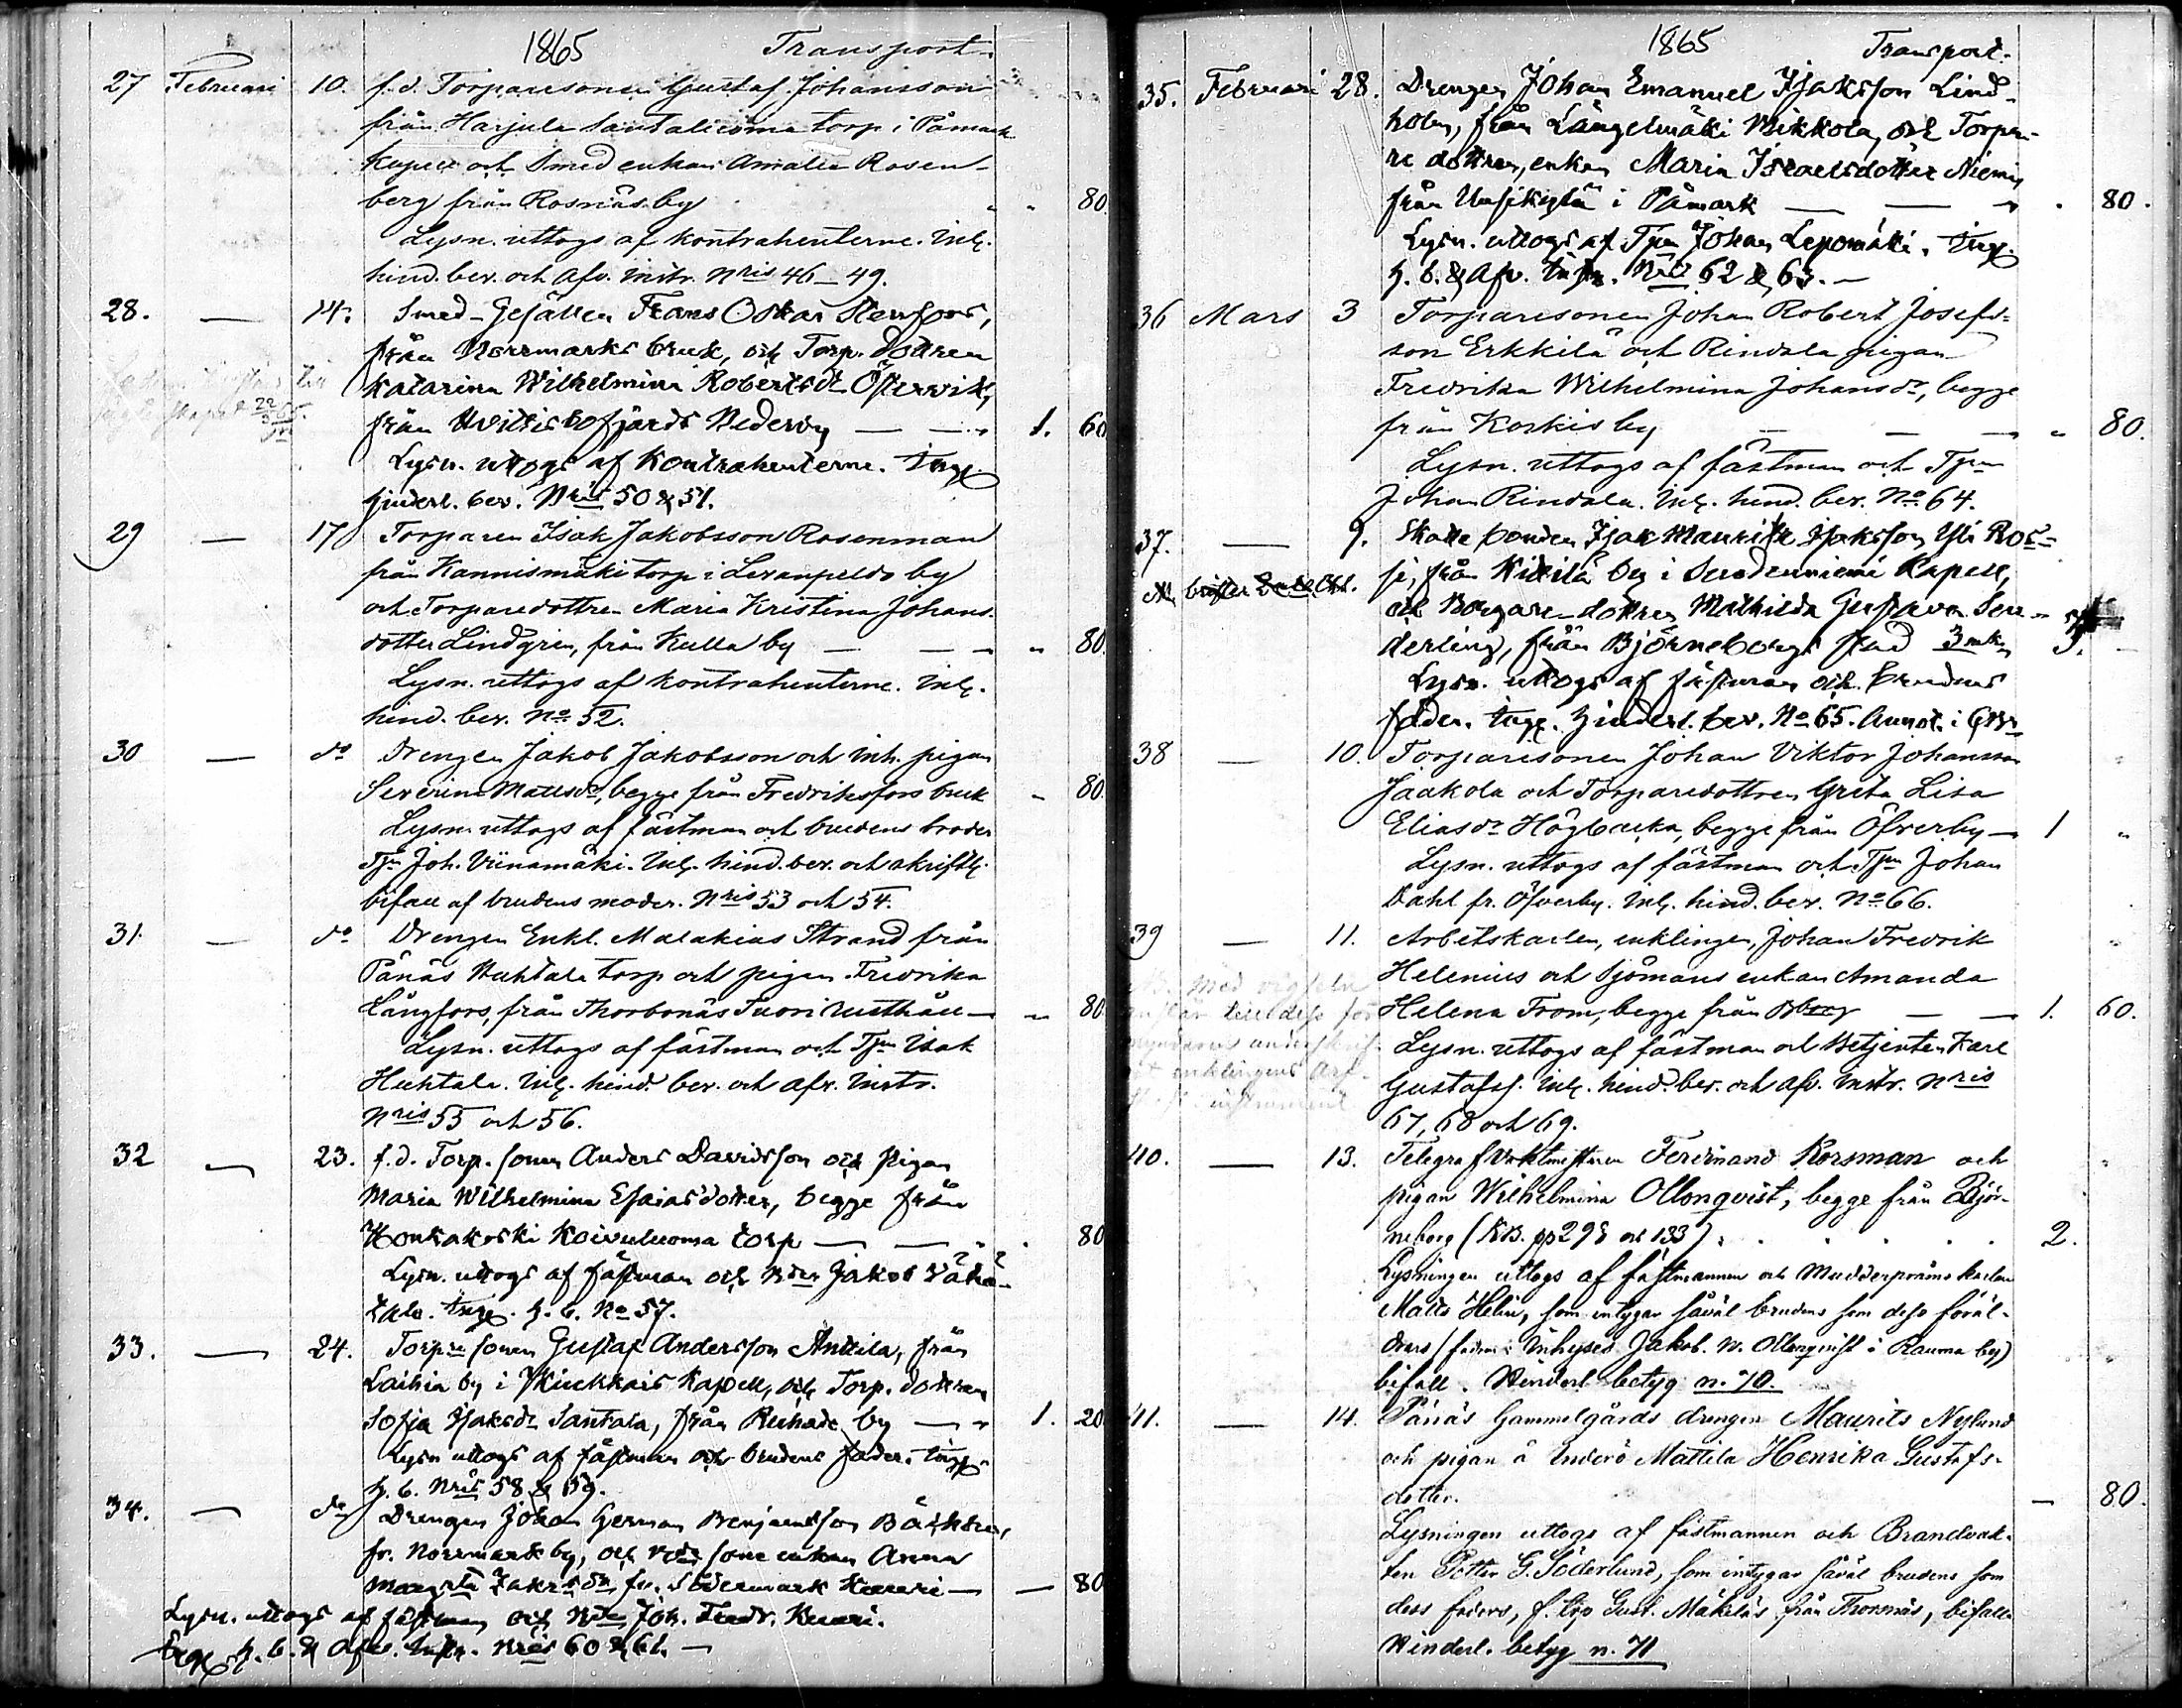 1865 Transport
27 Februari 10. f.d. Torparesonen Gustaf Johansson
från Harjula Santaluoma torp i Påmark
kapell och Smed enkan Amalia Rosen-
berg från Rosnäs by " " 80.
Lysn. uttogs af kontrahenterne. Inl.
hind. bev. och afv. instr. Nris 46-49.
28. — 14. Smed-Gesällen Frans Oskar Stenfors,
från Norrmarks bruk, och Torp. dottren
Katarina Wilhelmina Robertsdr Östervik,
från Hvittisbofjärds Nederby — — 1. 60
Lysn. uttogs af Kontrahenterne. Ingr.
hinderl. bev. Nris 50 & 51.
29 — 17 Torparen Isak Jakobsson Rosenman
från Kannismäki torp i Levanpeldo by
och Torparedottren Maria Kristina Johans-
dotter Lindgren, från Kulla by — — " 80.
Lysn. uttogs af kontrahenterne. Inl.
hind. bev. No 52.
30 — do Drengen Jakob Jakobsson och inh. pigan
Severina Mattsdr, begge från Fredriksfors bruk " 80.
Lysn. uttogs af fästman och brudens broder
Tpn Joh. Viinamäki. Inl. hind. bev. och skriftl.
bifall af brudens moder. Nris 53 och 54.
31. — do Drengen Enkl. Malakias Strand från
Pånäs Huhtala torp och pigan Fredrika
Långfors, från Thorbonäs Tuori rusthåll — " 80.
Lysn. uttogs af fästman och Tpn Isak
Huhtala. Inl. hind. bev. och afv. instr.
Nris 55 och 56.
32 — 23. f.d. Torp. sonen Anders Davidsson och pigan
Maria Wilhelmina Esaiasdotter, begge från
Honkakoski Koivuluoma torp — — " . 80
Lysn. uttogs af fästman och Bden Jakob Vähä-
talo. Ingr. h. b. No 57.
33. — 24. Torpre sonen Gustaf Andersson Anttila, från
Laihia by i Kiukkais Kapell, och Torp. dottren
Sofia Isaksdr Santala, från Ruhade by — " 1. 20
Lysn uttogs af fästman och brudens fader. Ingr.
h. b. Nris 58 & 59.
34. — do Drengen Johan German Benjamsson Bäckström,
fr. Norrmark by, och sone enkan Anna
Margreta Jakobsdr, fr. Södermark Kuuri — — 80
Lysn. uttogs af fästman och Bden Joh. Fredr. Kuuri.
Ingr. h. b. & Afv. instr. Nris 60 & 61. —
1865 Transport.
35. Februari 28. Drengen Johan Emanuel Isaksson Lind-
holm, från Längelmäki Mikkola, och Torpa-
re dottren, enkan Maria Israelsdotter Niemi,
från Uusikylä i Påmark — — " . 80.
Lysn. uttogs af Tpn Johan Lepomäki. Ingr.
h. b. & Afv. instr. Nris 62 & 63. —
36 Mars 3 Torparesonen Johan Robert Josefs-
son Erkkilä och Rindala pigan
Fredrika Wilhelmina Johansdr, begge
från Korkis by — — — " 80.
Lysn. uttogs af fästman och Tpn
Johan Rindala. Inl. hind. bev. No 64.
37. — 9. Skatte bonden Isak Maurits Isaksson Yli Ros-
si, från Kikilä by i Suodenniemi Kapell,
och Borgare-dottren Mathilda Gustava Sen-
derling, från Björneborgs stad 3 mk 3. —
Lysn. uttogs af fästman och brudens
fader. Ingr. hinderl. bev. No 65. Annot. i
38 — 10. Torparesonen Johan Viktor Johansson
Jaakola och Torparedottren Greta Lisa
Eliasdr Högbacka, begge från Öfverby — 1 "
Lysn. uttogs af fästman och Tpn Johan
Dahl fr. Öfverby. Inl. hind. bev. No 66.
39 — 11. Arbetskarlen, enklingen, Johan Fredrik
Helenius och Sjömans enkan Amanda
Helena From, begge från Bborg — — 1. 60.
Lysn. uttogs af fästman och Betjenten Karl
Gustafss. Inl. hind. bev. och afv. instr. Nris
67, 68 och 69.
40. — 13. Telegraf Vaktmästaren Ferdinand Korsman och
pigan Wilhelmina Ollonqvist, begge från Björ-
neborg (KB. pp 298 och 133). . . . . 2.
Lysningen uttogs af fästmannen och Mudderpråms karlen
Matts Helin, som intygar såväl brudens som dess föräl-
drars (fadren: Inhyses Jakob. W. Ollonqvist i Rauma by)
bifall. Hinderl. betyg n. 70.
41. — 14. Pånäs Gammelgårds drengen Maurits Nylund
och pigan å Inderö Mattila Henrika Gustafs-
dotter. — 80.
Lysningen uttogs af fästmannen och Brandvak-
ten Petter G. Söderlund, som intygar såväl brudens som
dess faders, f. trp Gust. Mäkiläs från Thorsnäs, bifall.
Hinderl. betyg n. 71